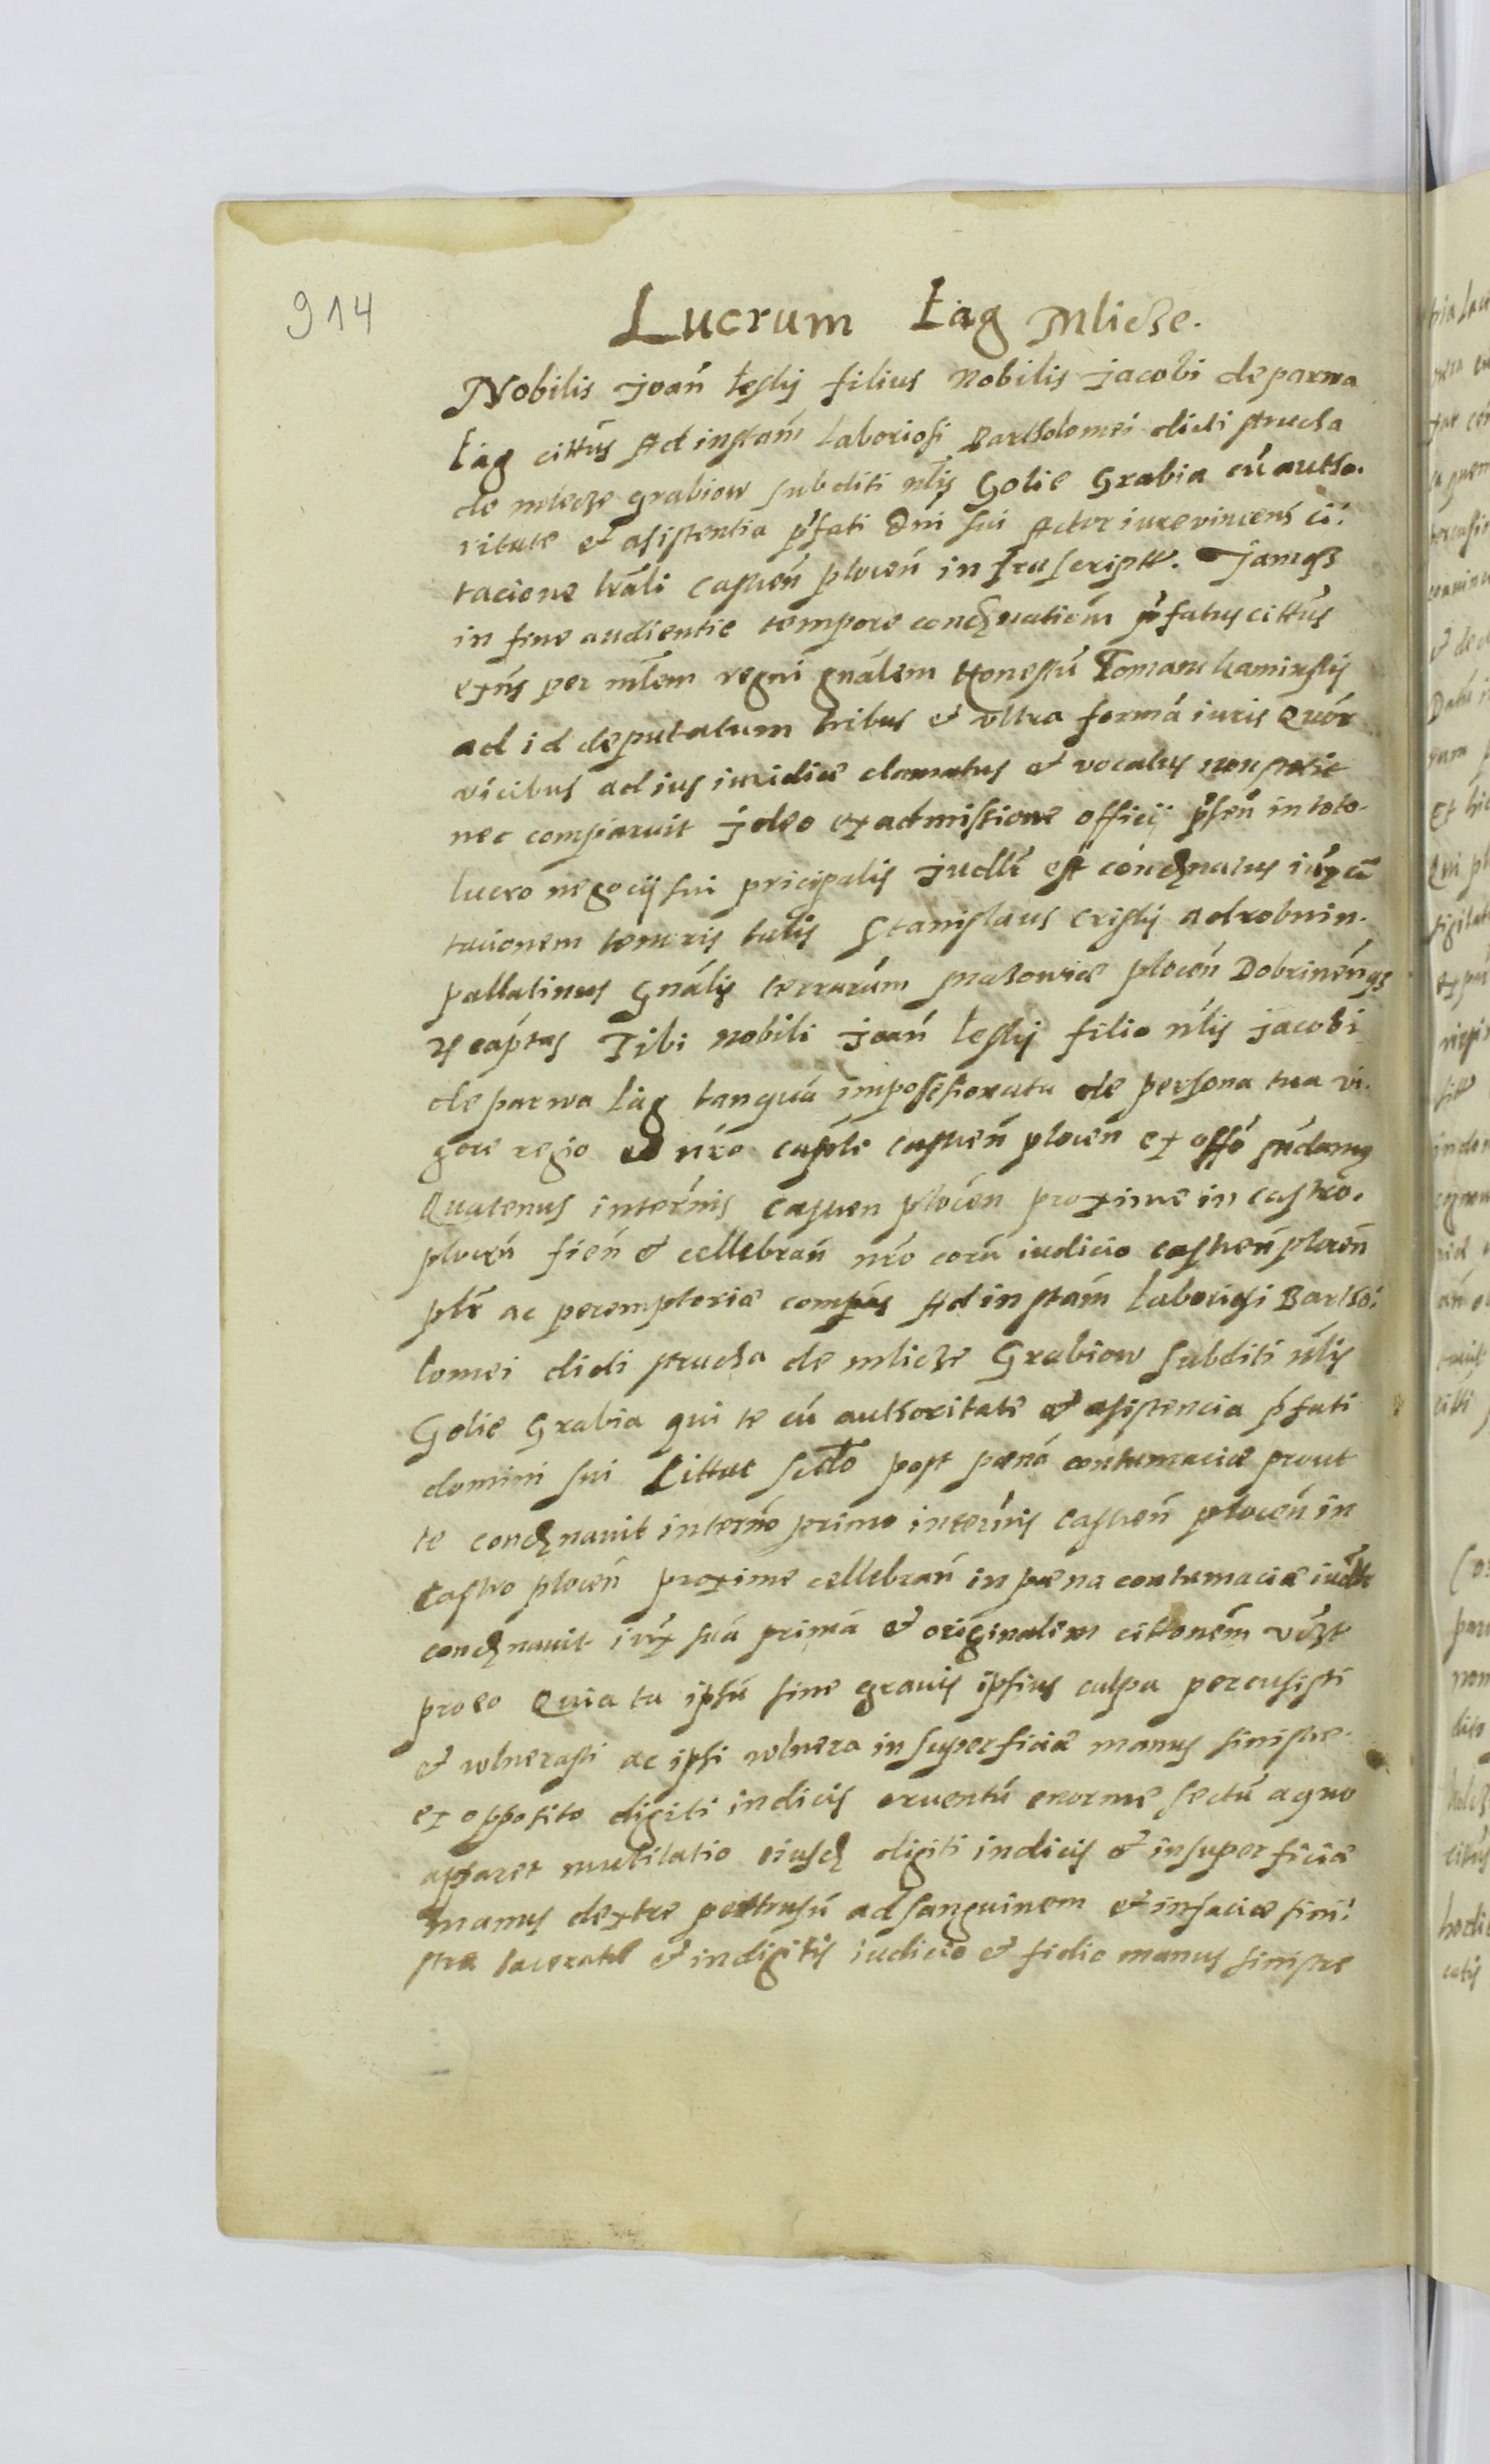 914
Lucrum Łąg Mlicze.
Nobilis Joań łeskij filius Nobilis Jacobi de parwa
łąg cittus Ad instam̄ Laboriosi Bartholomei dicti strucha
de mlecze grabiow subditi nlis Golie Grabia cū autho.
ritate et asistentia pfati Dni sui Actor iure vincens ci.
tacione trali castren plocen infrascriptt. Jamqz
in fine audientie tempore condēnationm pfatus cittus
exns per mlem regni gnalem Honestū Tomam kaminskij
ad id deputatum tribus et vltra formā iuris Quor
vicibus ad ius iuridice clamatus et vocatus non stetit
nec comparuit jdeo ex admissione officij psen in toto
lucro negocij sui pricipalis judltr est condēnatus iux ci
tacionem tenoris talis Stanislaus Criskij Adrobnin.
pallatinus Gnalis terrarum Masowiæ plocen Dobrinenqz
capitas Tibi Nobili Joań leskij filio nlis Jacobi
de parwa łąg tanquā impossessionatu de persona tua vi.
gore regio et nro capli castren plocen ex offo mdamus
Quatenus in ternis castren plocen proxime in castro.
plocen fień et cellebrań nro corū iudicio castreń plocen
pltr ac peremptorie compeas Ad instam̄ Laboriosi Bartho.
lomei dicti strucha de mlicze Grabiow subditi nlis
Golie Grabia qui te cū authoritate et asistencia pfati
domini sui Cittat scdo post pænā contumaciæ prout
te condēnauit in terno primo in ternis castren plocen in
Castro plocen proxime cellebrań in pæna contumaciæ iudltr
condēnauit iux suā primā et originalem cittonem vdzt
pro eo Quia tu ipsū sine grauis ipsius culpa percusisti
et wlnerasti ac ipsi wlnera in superficiæ manus sinistre.
ex opposito digiti indicis cruentū enorme sectū a quo
apparet mutilatio eiusd digiti indicis et in superficiæ
manus dextre pertusū ad sanguinem et in faciæ sini.
stra laceratū et in digitis indicio et fidio manus sinistre